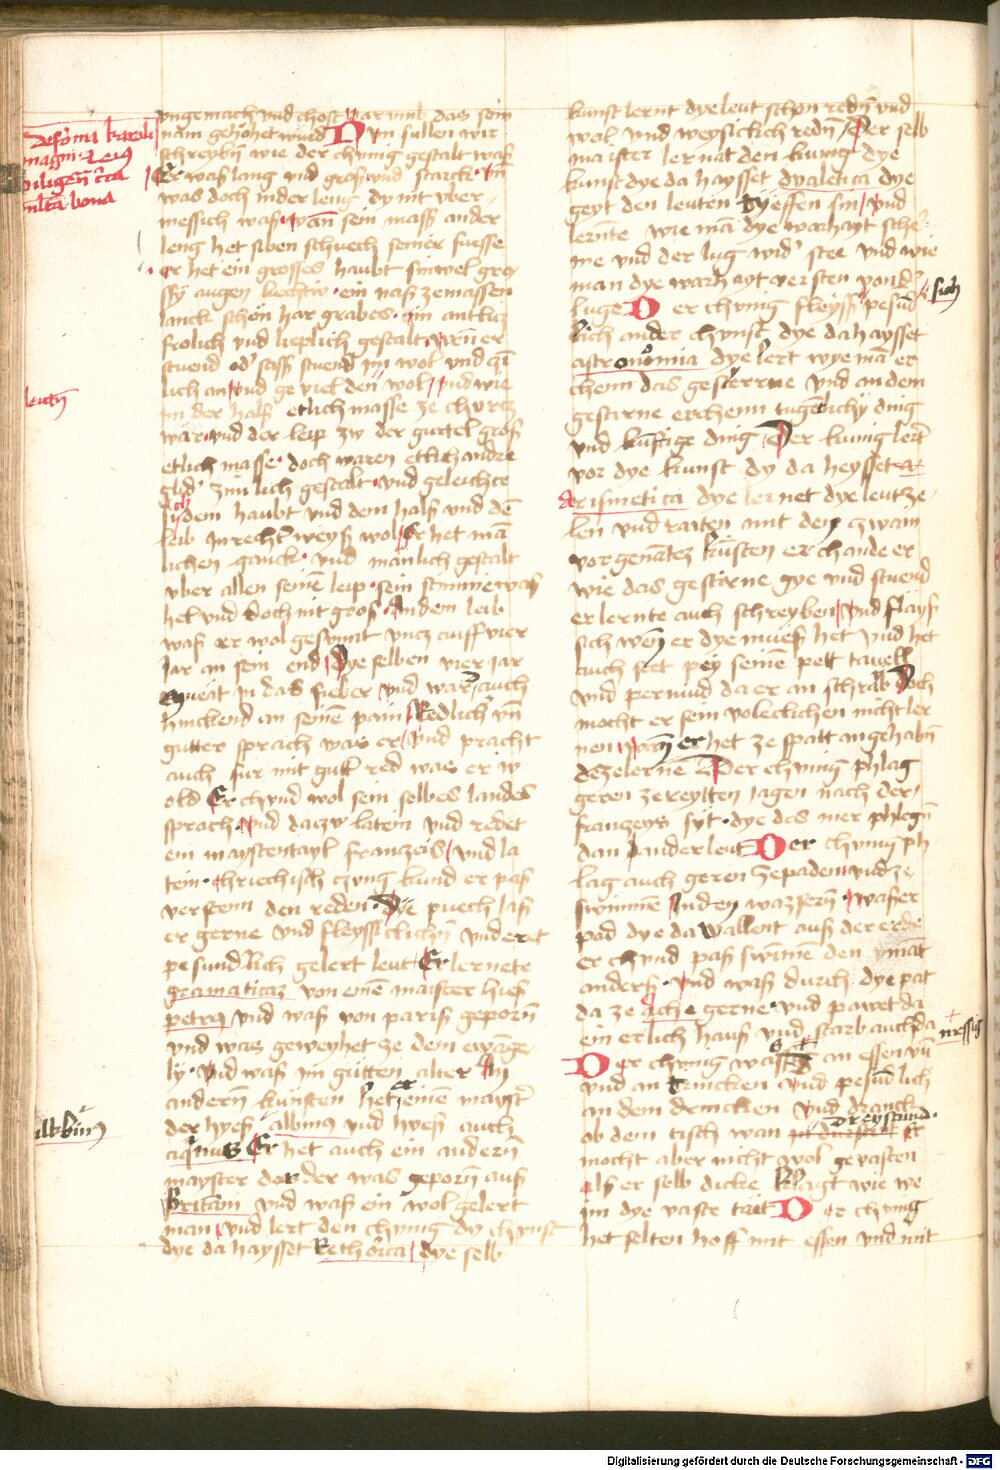 De forma karoli
magni
bona
vngemach vnd chost Darumb das sein
nam gehöhet wurd Nun sullen wir
schreybñ wie der chunig gestalt was
Er was lang vnd gros vnd starck Im
was doch in der leng dy nit vber¬
messich was wann sein mass ander
leng het siben schuech seiner fuesse
er het ein grosses haubt sinwel gro¬
ssy augen liechtw ein nas ze massen
lanck schön har grabes im antlicz
frolich vnd lieplich gestalt wañ er
stuend od' sass stuend im wol vnd
lich an vnd geviel den wol vnd wie
im der hals etlich masse ze churcz
war vnd der leip zw der gurtel gros
etlich masse doch waren etlich andre
glid' zimlich gestalt vnd geleichte
sich dem haubt vnd dem hals vnd dē
leib In recht weys wol Er het mā
lichen ganck vnd manlich gestalt
vber allen seinē leip sein stimme was
hel vnd doch nit gros An dem leib
was er wol gesunt vncz auff vier
Jar an sein end Dye selben vier jar
in das fieber vnd war auch
hinckend an seinē pain Redlich vñ
gutter sprach was er vnd pracht
auch fur mit gutt' red was er w
old Er chund wol sein selbes landes
sprach vnd daczu latein vnd redet
ein maystentayl franzeis vnd la
tein chriechisch czung kund er pas
versten den reden Dye puech las
er gerne vnd fleyssiclichñ vnd eret
pesundlich gelert leut Er lernete
gramaticaz von einē maister hies
petrus vnd was von paris geporñ
vnd was geweyhet ze dem ewāge¬
ly vnd was im gutten alter In
anderñ kunsten het er einem mayst'
der hyes albinus vnd hyes auch
Er het auch ein anderñ
mayster der was geporñ aus
Britani vnd was ein wol gelert
man vnd lert den chunig dy chunst
dye da haysset Rethorica dye selb
kunst lernt dye leut schon redñ vnd
wol vnd weyslich redñ Der selb
maister lernat den kunig dye
kunst dye da haysset dyaletica dye
geyt den leuten tyeffen sin vnd
lernte wie mā dye warhayt sche¬
ne vnd der lug wid' stee vnd wie
man dye warhayt versten von d'
luge Der chunig fleyss pesund sich
lich ander chunst dye da haysset
astronomia dye lert wye mā er
chenn das gesterrne vnd an dem
gestirne erchenn tugētlichy ding
vnd kunftige ding Der kunig lert
vor dye kunst dy da heysset
Arismetica dye lernet dye leut ze¬
len vnd raiten mit den czwain
vorgenātez küsten erchande er
wie das gestirne gye vnd stuend
er lernte auch schreyben vnd flays
sich wen er dye mues het vnd het
auch stet pey seinē pett tauell
vnd permud da er an schraib Doch
mocht er sein voleclichen nicht ler
nen wan er het ze spatt angehabñ
des ze lerne Der chunig phlag
geren ze reytten jagen nach der
franzeys syt dye das mer phlegñ
dan ander leut Der chunig ph
lag auch geren ze paden vnd ze
swimmē In den wazsern was er
pad dye da wallent aus der erde
er chund pas swimmē den ymāt
anders vnd was durch dye pat
da ze ache gerne vnd pawet da
ein erlich haus vnd starb auch da
Der chunig was messig an essen vñ
vnd an trincken vnd pesūdlich
an dem drincken vnd dranck
ob dem tisch wan dreystund Er
mocht aber nicht wol gevasten
als er selb dicke klagt wie we
im dye vaste tät Der chunig
het selten hoff mit essen vnd mit
Digitalisierung gefördert durch die Deutsche Forschungsgemeinschaft - DFG